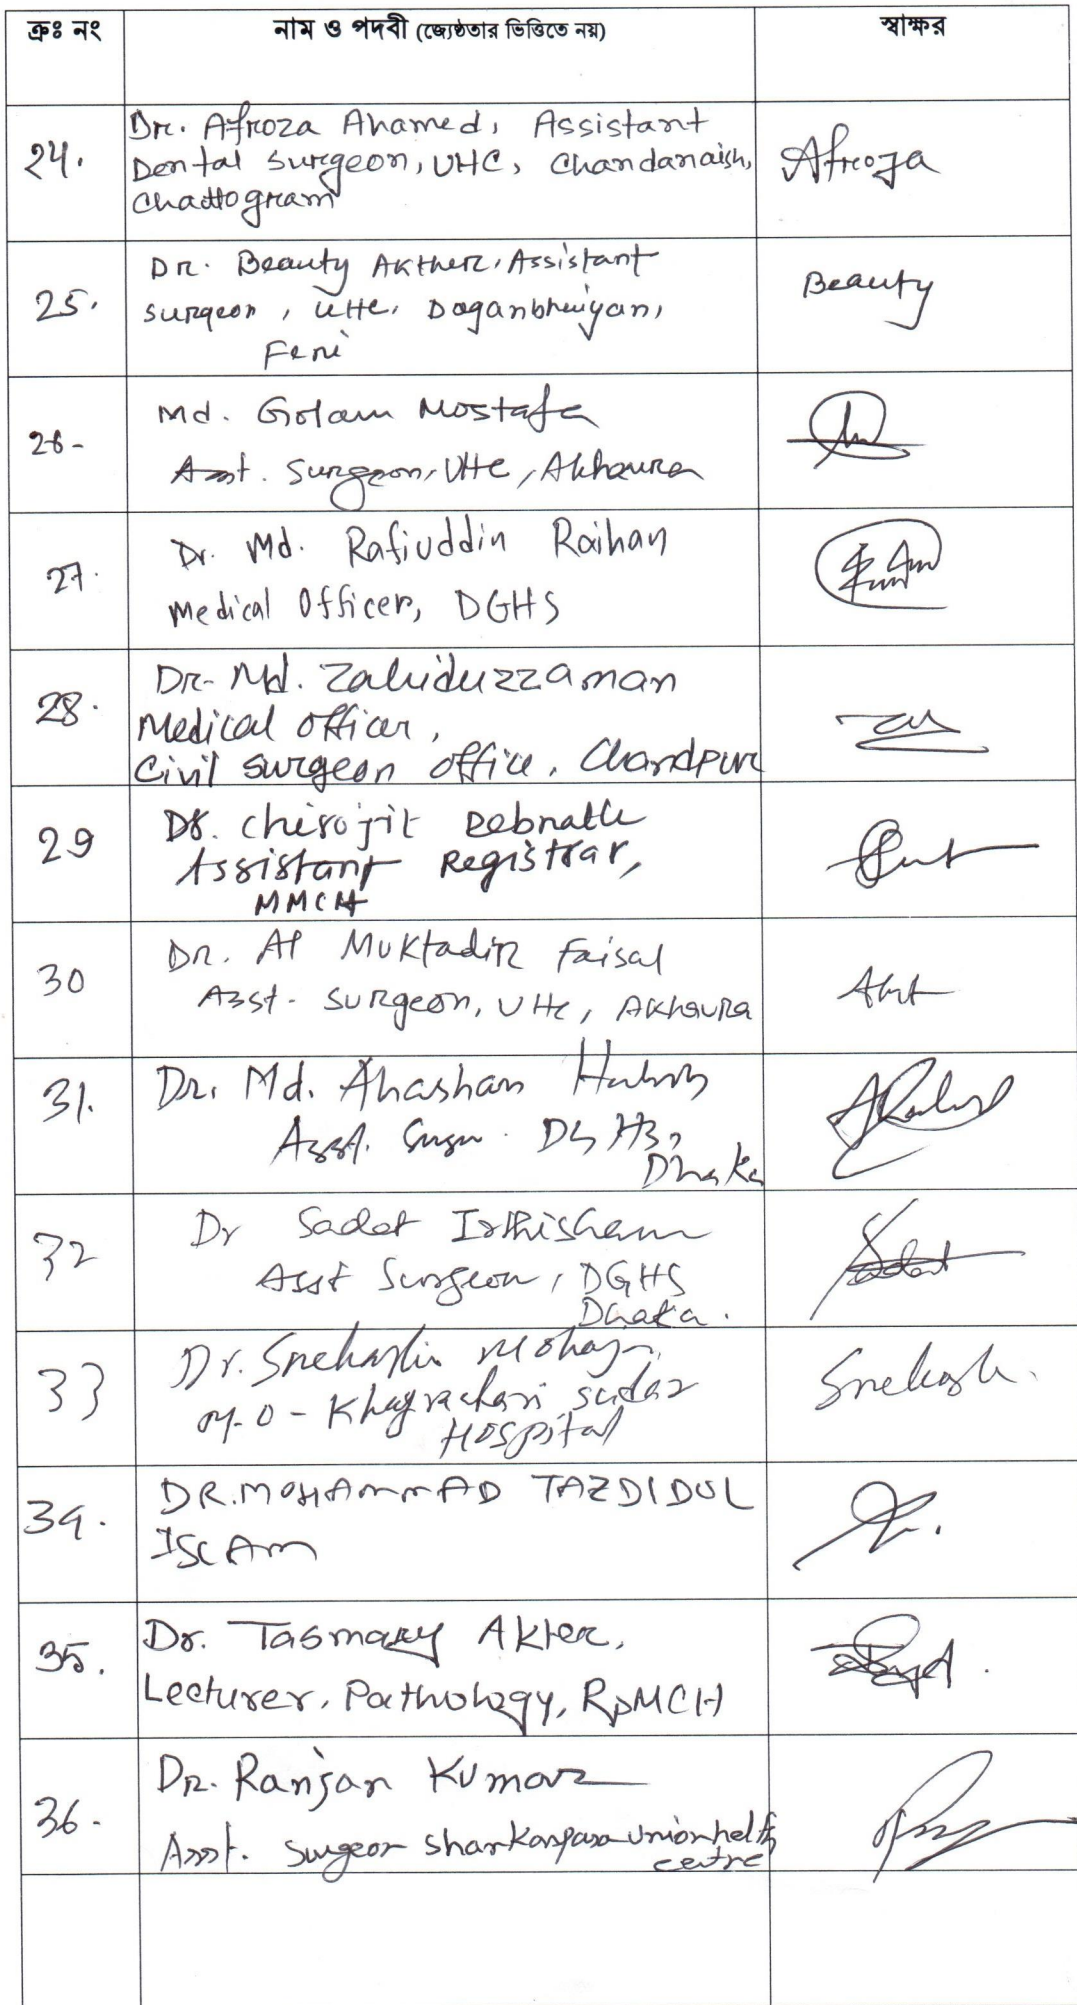 ক্রঃ নং নাম ও পদবী (জ্যেষ্ঠতার ভিত্তিতে নয়) স্বাক্ষর
24. Dr. Afroza Ahamed, Assistant
Dental Surgeon, UHC, Chandanaish,
Chattogram
Afroza
25. Dr. Beauty Akther, Assistant
surgeon, UHC, Daganbhuiyan,
Feni
Beauty
26- Md. Golam Mostafa
Asst. Surgeon, UHC, Akhaura
27. Dr. Md. Rafiuddin Raihan
Medical Officer, DGHS
28. Dr. Md. Zahiduzzaman
Medical officer,
Civil surgeon office, Chandpur
29 Dr. Chirojit Debnath
Assistant Registrar,
MMCH
30 Dr. Al Muktadir Faisal
Asst. Surgeon, UHC, Akhaura
31. Dr. Md. Ahashan Habib
Asst. DGHS,
Dhaka
32 Dr Sadat Isthisham
Asst Surgeon, DGHS
Dhaka.
33 Dr. Snehashis
M.O - Khagrachari sadar
Hospital
34. DR. MOHAMMAD TAZDIDUL
ISLAM
35. Dr. Tasmary Akter,
Lecturer, Pathology, RpMCH
36- Dr. Ranjan Kumar
Asst. Surgeon Sharkarpara Union helth
centre